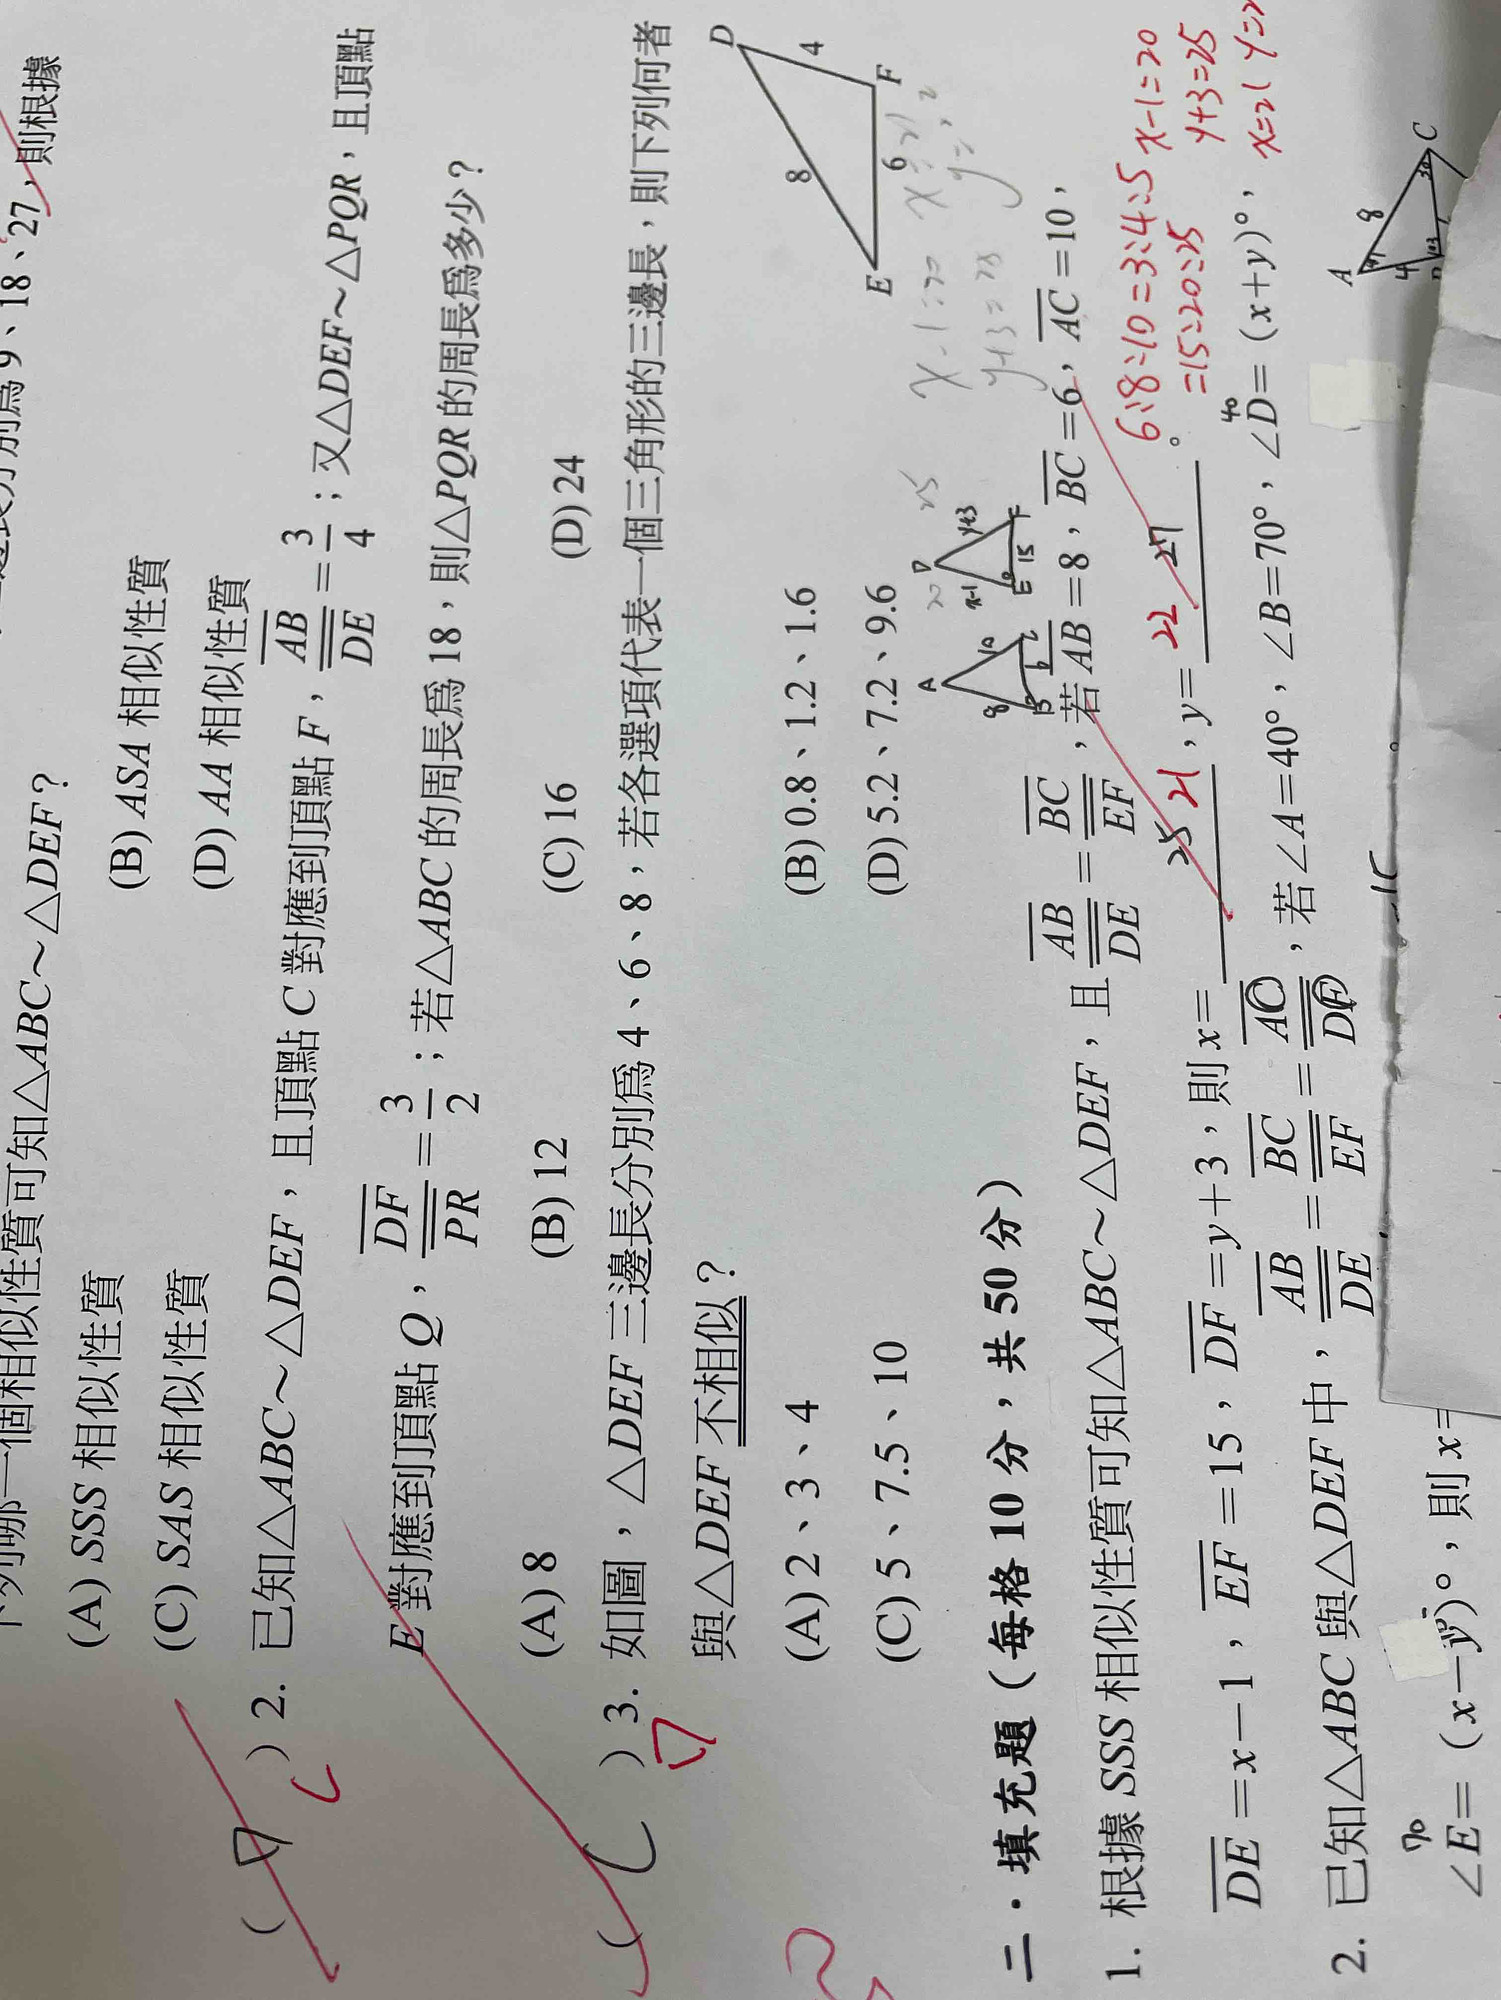 9、18、27，則根據
一個相似性質可知△ABC～△DEF？
(A) SSS 相似性質 (B) ASA 相似性質
(C) SAS 相似性質 (D) AA 相似性質
( D ) 2. 已知△ABC～△DEF，且頂點 C 對應到頂點 F，AB/DE=3/4；又△DEF～△PQR，且頂點
C
E 對應到頂點 Q，DF/PR=3/2；若△ABC 的周長為 18，則△PQR 的周長為多少？
(A) 8 (B) 12 (C) 16 (D) 24
( C ) 3. 如圖，△DEF 三邊長分別為 4、6、8，若各選項代表一個三角形的三邊長，則下列何者
D
與△DEF 不相似？
(A) 2、3、4 (B) 0.8、1.2、1.6
(C) 5、7.5、10 (D) 5.2、7.2、9.6
D
8
4
E
6
F
x-1=20 x=21
y+3=25
二．填充題（每格 10 分，共 50 分）
A
8
10
B
6
D
x-1
y+3
E
15
F
20
25
1. 根據 SSS 相似性質可知△ABC～△DEF，且 AB/DE=BC/EF，若 AB=8，BC=6，AC=10，
DE=x－1，EF=15，DF=y+3，則 x= 25 21，y= 22 27。
6:8:10=3:4:5
=15:20:25
x-1=20
y+3=25
x=21
2. 已知△ABC 與△DEF 中，AB/DE=BC/EF=AC/DF，若∠A=40°，∠B=70°，∠D=(x+y)°，
40
70
∠E=(x－y)°，則 x=
A
8
4
C